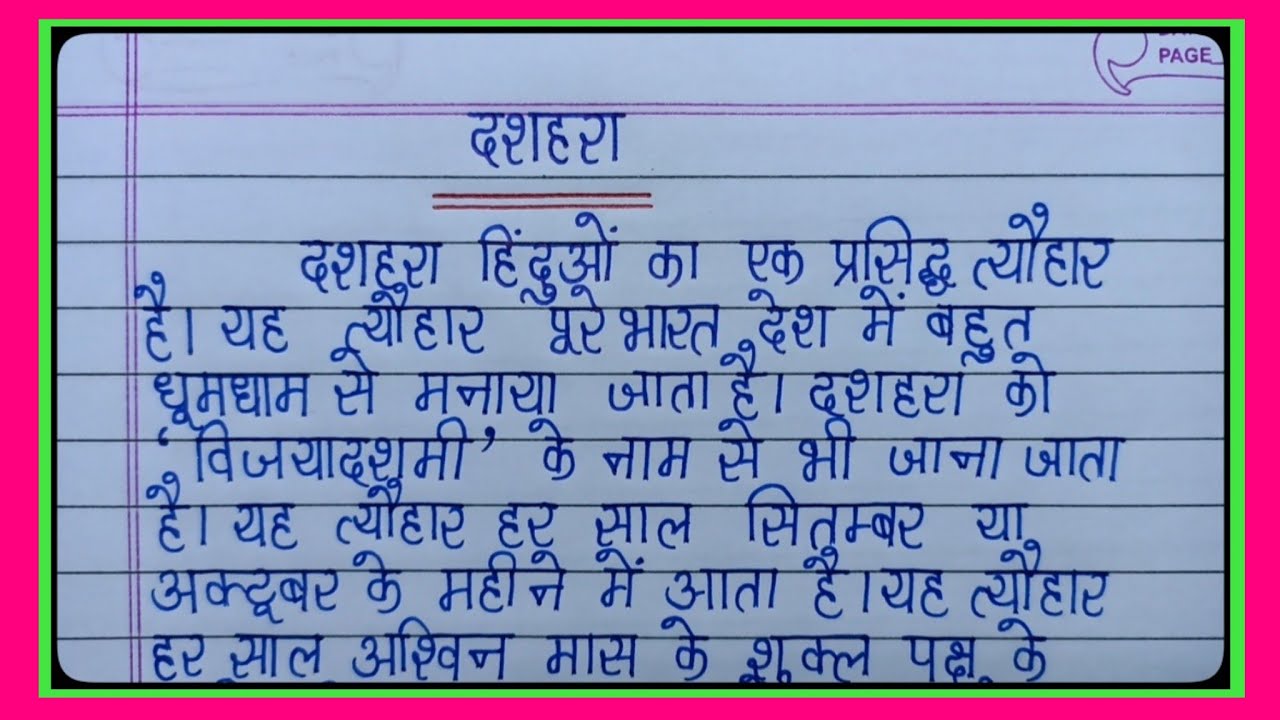 PAGE
दशहरा
दशहरा हिंदुओं का एक प्रसिद्ध त्यौहार
है। यह त्यौहार पूरे भारत देश में बहुत
धूमधाम से मनाया जाता है। दशहरा को
‘विजयादशमी’ के नाम से भी जाना जाता
है। यह त्यौहार हर साल सितम्बर या
अक्टूबर के महीने में आता है। यह त्यौहार
हर साल अश्विन मास के शुक्ल पक्ष के